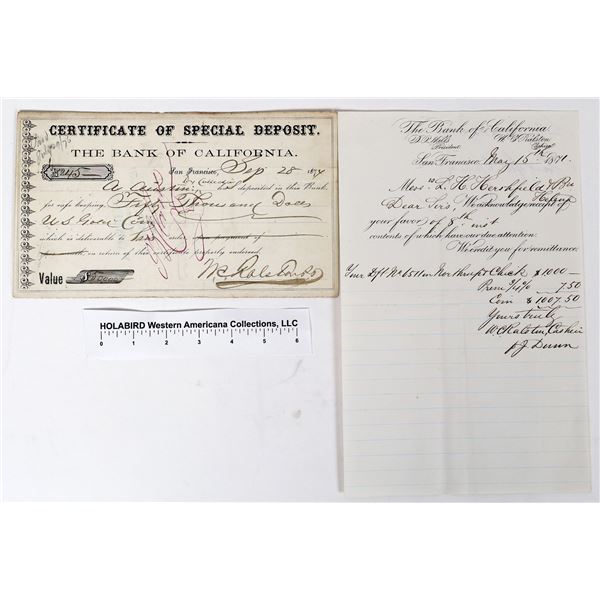 CERTIFICATE OF SPECIAL DEPOSIT.
OF
THE BANK OF CALIFORNIA.
San Francisco, Sep 28 1874
A. Austin has deposited in this Bank
for safe keeping Five Thousand Dolls
U S Gold Coin
which is deliverable to
on return of this certificate properly endorsed.
Value
HOLABIRD Western Americana Collections, LLC
0 1 2 3 4 5 6
The Bank of California
D. O. Mills President
W. C. Ralston Cashier
San Francisco May 15th 1871.
Mess. L. H. Hershfield & Bro
Helena
Dear Sirs, We acknowledge receipt of
your favor of 8th inst
contents of which have our due attention.
We credit you for remittance.
Your Dft No on Northrup & Chick $1000—
Prem 7.50
Coin $1007.50
Yours truly
W. C. Ralston, Cashier
p J Dunn